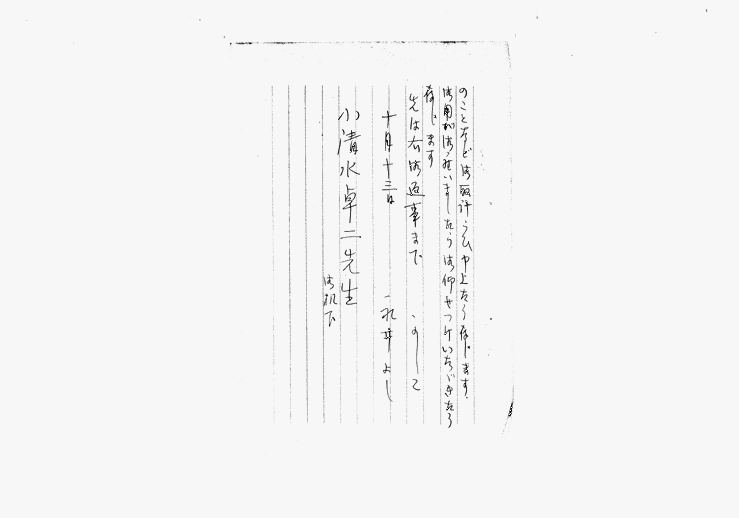 のことなど御取計らひ申上たう存じます。
御用が御座いましたら御仰せつけいたゞきたう
存じます
先は右御返事まで かしこ
十月十三日 よし
小清水卓二先生
御机下